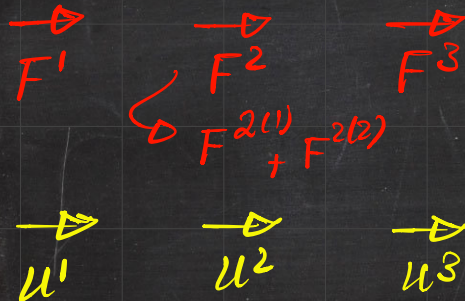 F¹ F² F³
F²⁽¹⁾ + F²⁽²⁾
u¹ u² u³